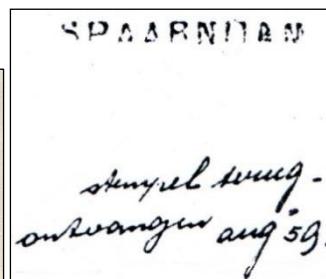 SPAARNDAM
stempel terug-
ontvangen aug '59.